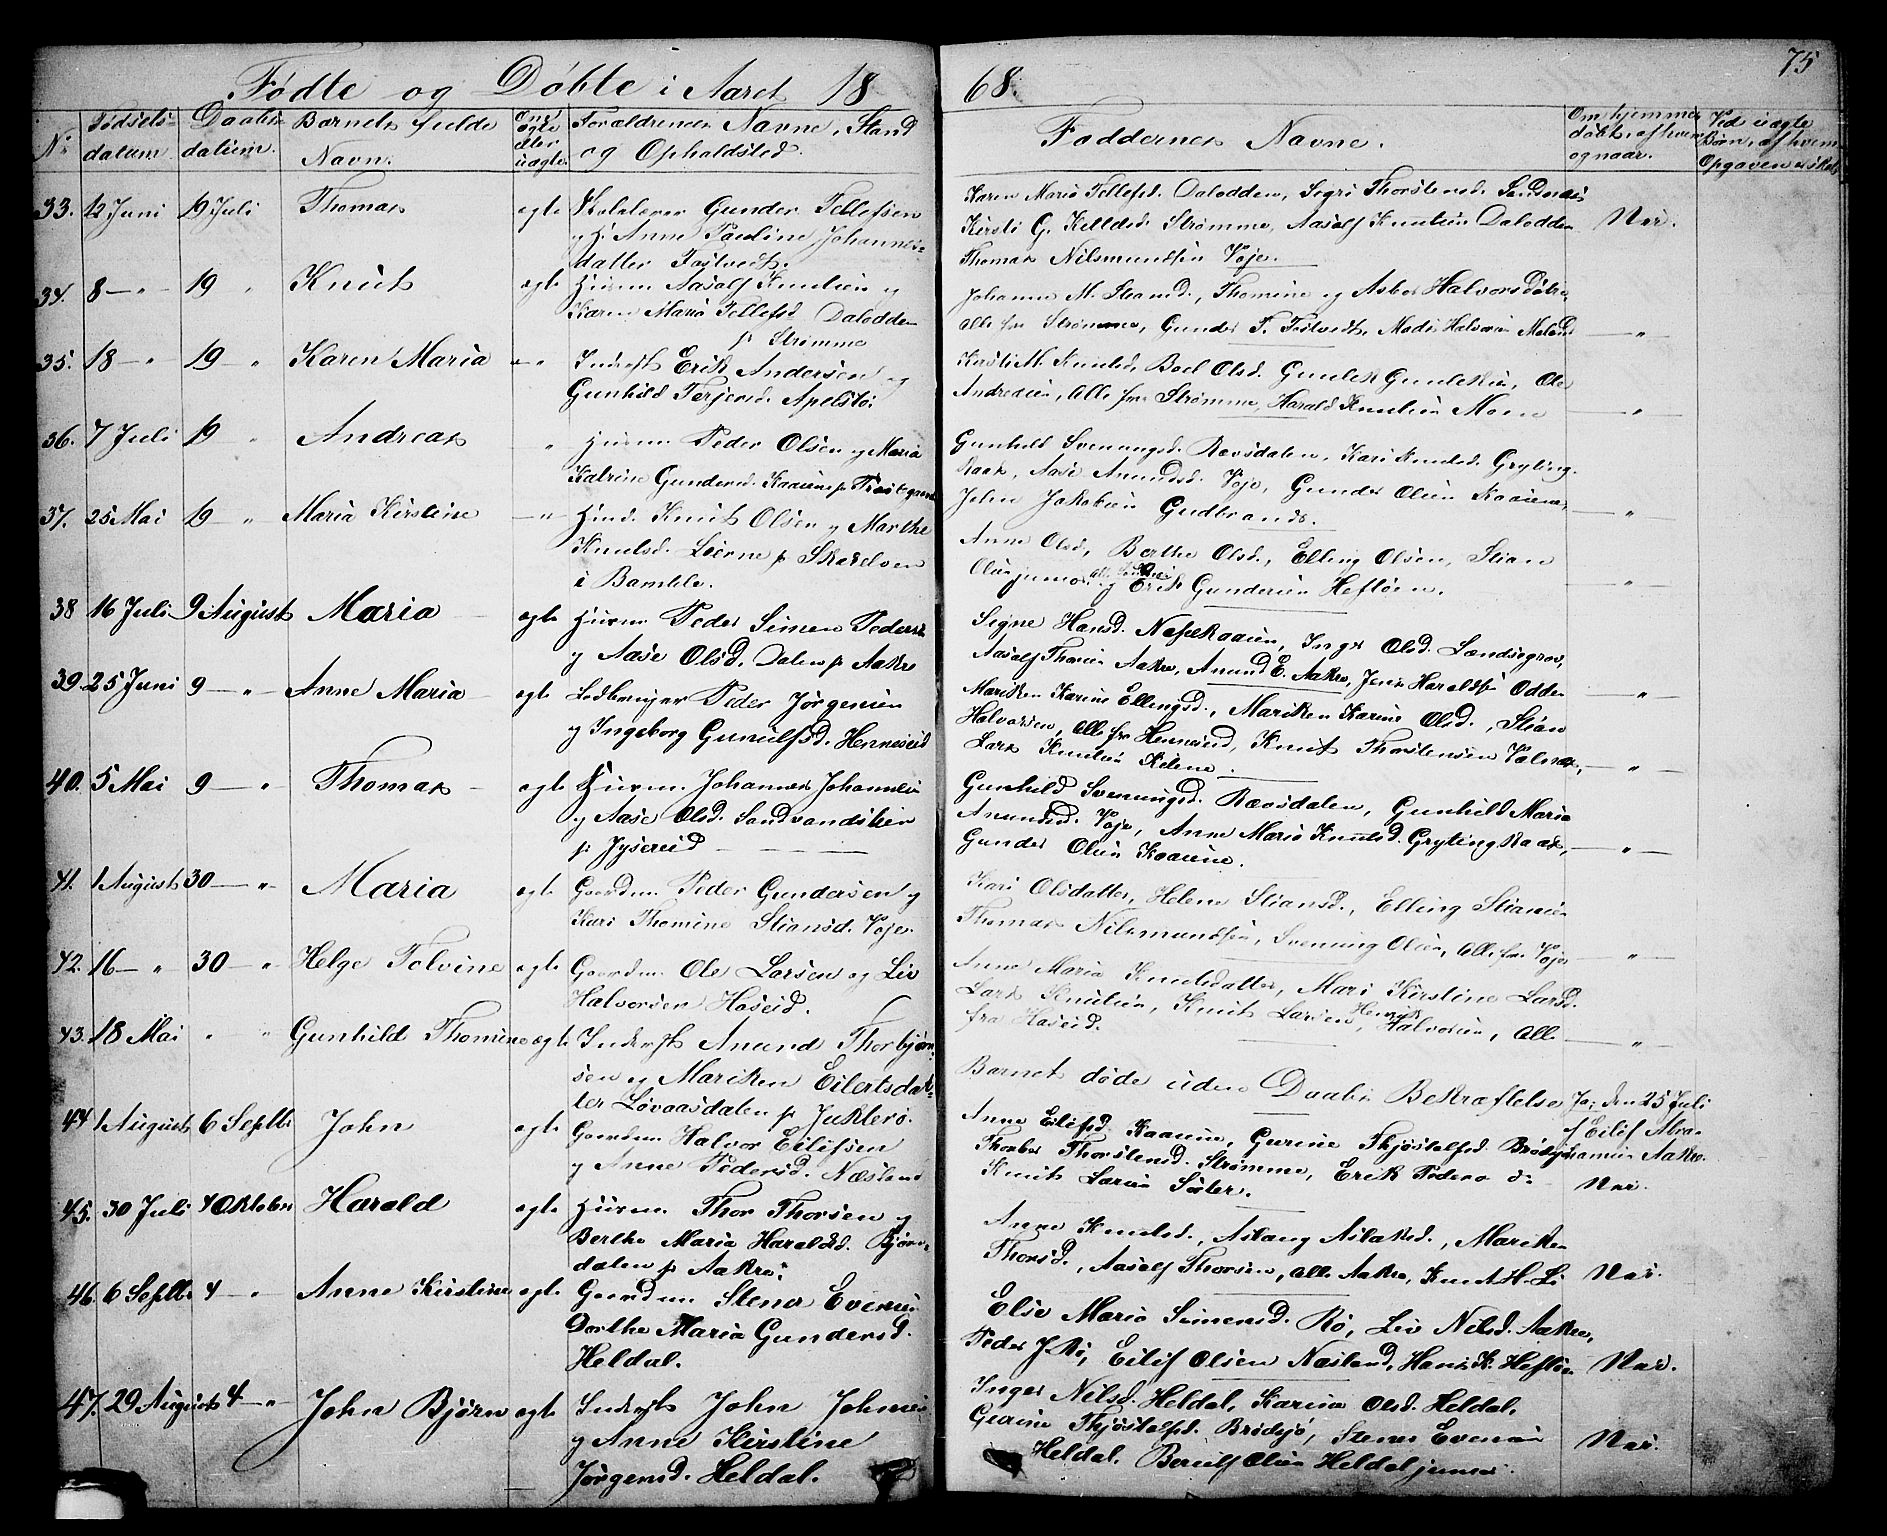 75
Fødte og Døbte i Aaret 1868.
No
Fødsels-
datum.
Daabs-
datum.
Barnets fulde
Navn.
Om
ægte
eller
uægte
Forældrenes Navne, Stand
og Opholdsted.
Faddernes Navne.
Om hjemme-
døbt, af hvem
og naar.
Ved uægte
Børn, af hvem
Opgaven er skeet
33. 12 Juni 19 Juli Thomas ægte Skolelærer Gunder Tellefsen
og H. Anne Pauline Johannes-
datter Tostvedt.
Karen Maria Tellefsd. Dalodden, Sigri Thorstensd. Sandnæs
Kirsti G. Kittilsd. Strømme, Aasolf Knutsen Dalodden
Thomas Nilsmundsen Voje.
Nei.
34. 8 — " 19 " Knut ægte Huusm. Aasolf Knutsen og
Karen Maria Tellefsd. Dalodden
p. Strømme
Johanne M. Strand., Thomine og Asber Halvorsdøtre
alle fra Strømme, Gunder T. Tostvedt, Mads Halvorsen Meland
— " —
35. 18 — " 19 " Karen Maria — " Inderst Erik Andersen og
Gunhild Terjesd. Apelstø.
Kirsti M. Knutsd, Boel Olsd. Gunlek Gunleksen, Ole
Andreasen, alle fra Strømme, Harald Knutsen Moen
— " —
36. 7 Juli 19 " Andreas " Huusm. Peder Olsen og Maria
Katrine Gundersd. Kaasene p.
Gunhild Svenungsd. Rævsdalen, Kari Knutsd. Gryting-
Raak, Aase Amundsd. Voje, Gunder Olsen Kaasene,
John Jakobsen Gudbrands.
— " —
37. 25 Mai 19 — " Maria Kirstine — " — Huusm. Knut Olsen og Marthe
Knutsd. Lierne p. Skarelven
i Bamble.
Anne Olsd, Berthe Olsd., Elling Olsen, Stian
Olsen junior, og Erik Gundersen Hefteen.
— " —
38 16 Juli 9 August Maria — ægte Huusm. Peder Simen Peders.
og Aase Olsd. Dalen p. Aakre
Signe Hansd. Næsekaasen, Inger Olsd. Landsogrov,
Aasolf Thorsen Aakre, Amund E. Aakre, Jens Haraldsen Odden
— " —
39. 25 Juni 9 — " Anne Maria — ægte Ledbruger Peder Jørgensen
og Ingeborg Gunulfsd. Henneseid
Mariken Karine Ellingsd., Mariken Karine Olsd., Stian
Halvorsen, alle fra Henneseid, Knut Thorstensen Valnæs,
Lars Knutsen Kilene.
— " —
40. 5 Mai 9 — " Thomas — ægte Huusm. Johannes Johannesen
og Aase Olsd. Sandvandstien
p. Jysereid
Gunhild Svenungsd. Rævsdalen, Gunhild Maria
Amundsd. Voje, Anne Maria Knutsd. Gryting Raak,
Gunder Olsen Kaasene.
— " —
41. 1 August 30 — " Maria ægte Gaardm. Peder Gundersen og
Kari Thomine Stiansd. Voje
Kari Olsdatter, Helene Stiansd., Elling Stiansen
Thomas Nilsmundsen, Svenung Olsen, alle fra Voje
— " —
42. 16 — " 30 — " Helge Tolvine ægte Gaardm. Ole Larsen og Liv
Halvorsen Haseid.
Anne Maria Knutsdatter, Mari Kirstine Larsd.
Lars Knutsen, Knut Larsen, Henrik Halvorsen, Alle
fra Haseid.
— " —
43. 18 Mai " " Gunhild Thomine ægte Inderst Amund Thorbjørn-
sen og Mariken Eilertsdat-
ter Løvaasdalen p. Jukterø.
Barnet døde uden Daabs Bekræftelse Ja, den 25 Juli
af Eilif Abra-
hamsen Aakre.
44 1 August 6 Septbr John ægte Gaardm. Halvor Eilifsen
og Anne Pedersd. Næsland
Anne Eilifsd. Kaasene, Gurine Thjøstolfsd. Brødsjø
Thorber Thorstensd. Strømme, Erik Peders. do
Knut Larsen Sister.
Nei.
45. 30 Juli 4 Oktober Harald ægte Huusm. Thor Thorsen og
Berthe Maria Haraldsd. Bjørn-
dalen p. Aakre.
Anne Knutsd., Aslaug Aslaksd., Mariken
Thorsd., Aasolf Thorsen, alle Aakre, Knut H. Li
Nei.
46. 6 Septbr 4 — " Anne Kirstine ægte Gaardm. Stener Evensen
Dorthe Maria Gundersd.
Heldal.
Else Maria Simensd. Rø, Liv Nilsd. Aakre,
Peder J. Rø, Eilif Olsen Næsland, Hans K. Hefteen
Nei.
47. 29 August 4 — " John Bjørn ægte Inderst John Johnsen
og Anne Kirstine
Jørgensd. Heldal.
Inger Nilsd. Heldal, Karine Olsd. Heldal.
Gurine Thjøstolfsd. Brødsjø, Stener Evensen
Heldal. Berulf Olsen Heldal junior.
Nei.